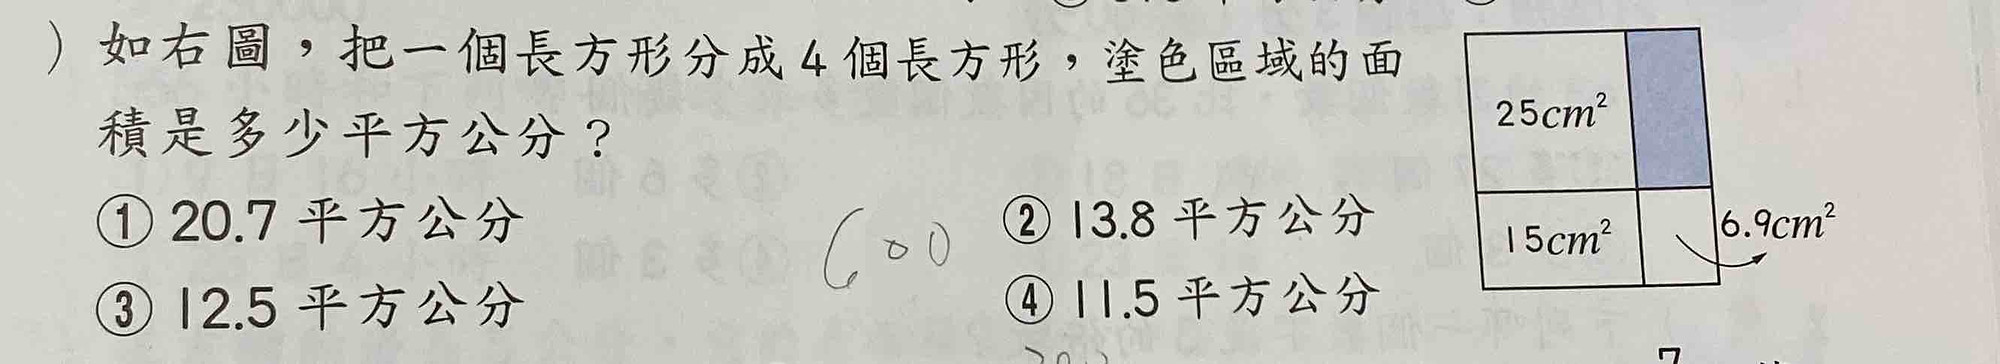 ) 如右圖，把一個長方形分成4個長方形，塗色區域的面
積是多少平方公分？
① 20.7 平方公分
② 13.8 平方公分
③ 12.5 平方公分
④ 11.5 平方公分
600
25cm²
15cm²
6.9cm²
7